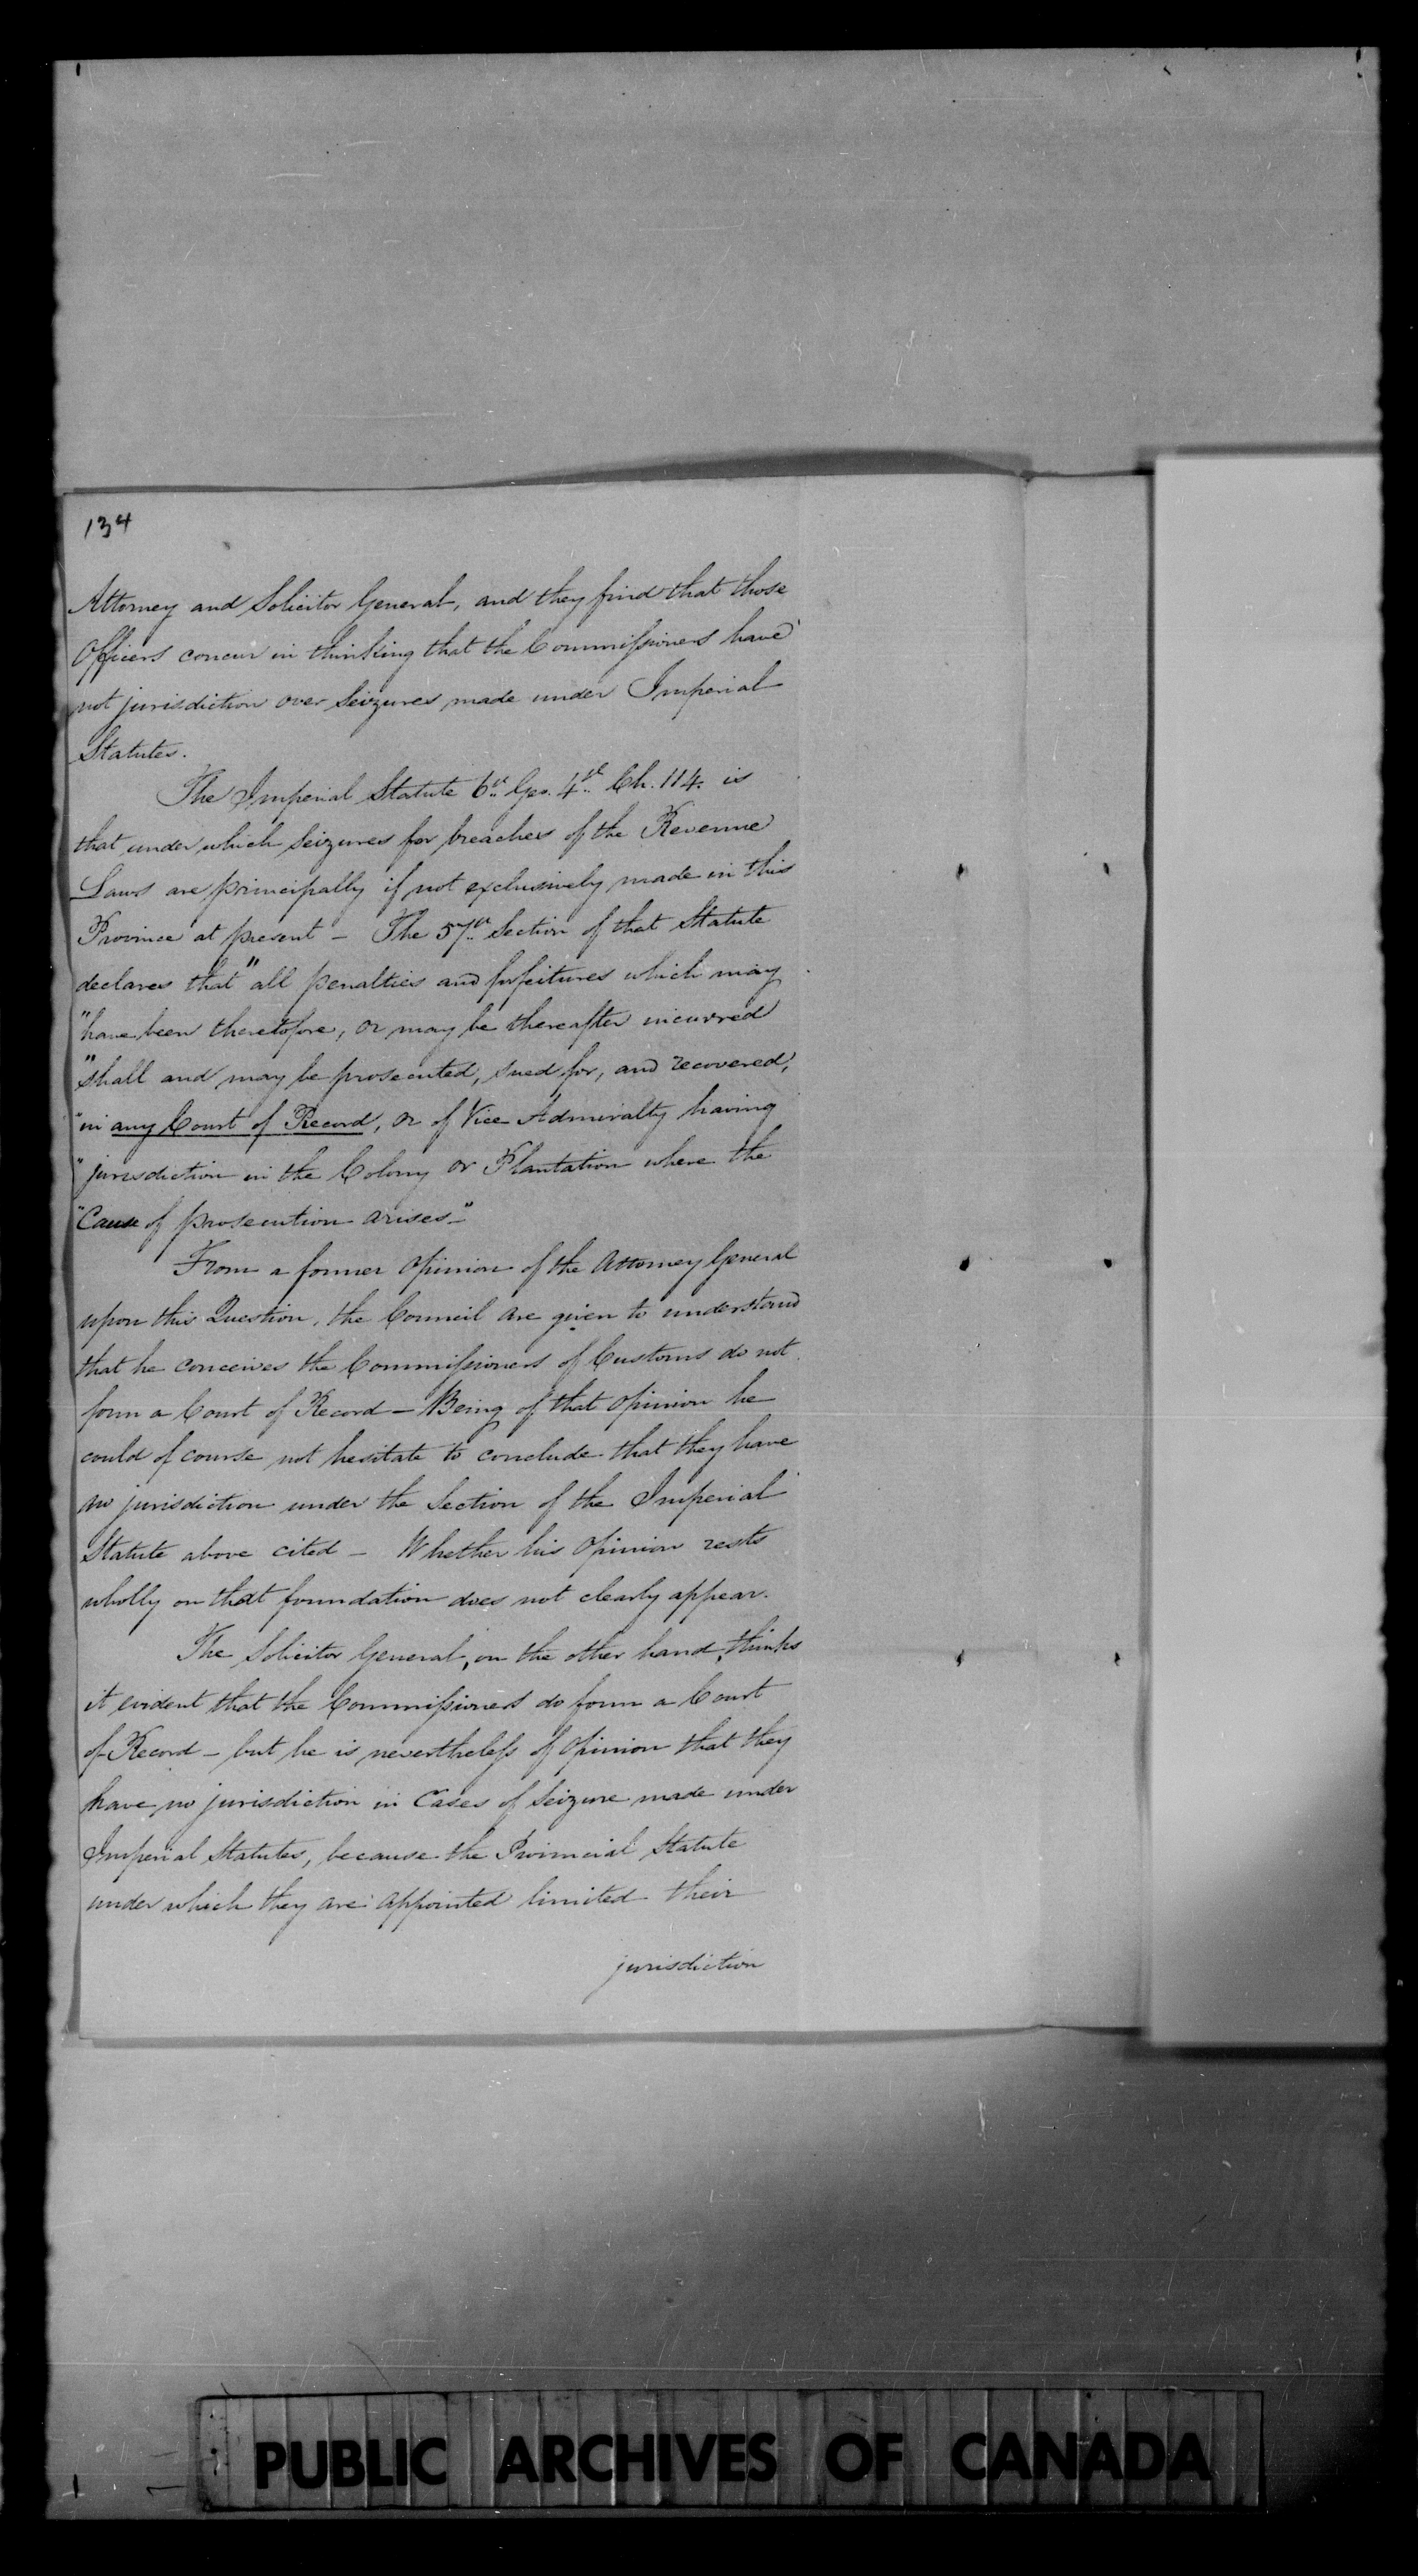 134
Attorney and Solicitor General, and they find that those
Officers concur in thinking that the Commissioners have
not jurisdiction over Seizures made under Imperial
Statutes.
The Imperial Statute 6th Geo. 4th Ch. 114. is
that under which Seizures for breaches of the Revenue
Laws are principally if not exclusively made in this
Province at present – The 57th Section of that Statute
declares that "all penalties and forfeitures which may
"have been theretofore, or may be thereafter incurred
"shall and may be prosecuted, sued for, and recovered,
"in any Court of Record, or of Vice Admiralty having
"jurisdiction in the Colony or Plantation where the
"Cause of prosecution arises–"
From a former Opinion of the Attorney General
upon this Question, the Council are given to understand
that he conceives the Commissioners of Customs do not
form a Court of Record – Being of that Opinion he
could of course not hesitate to conclude that they have
no jurisdiction under the Section of the Imperial
Statute above cited – Whether his Opinion rests
wholly on that foundation does not clearly appear.
The Solicitor General, on the other hand, thinks
it evident that the Commissioners do form a Court
of Record – but he is nevertheless of Opinion that they
have no jurisdiction in Cases of Seizure made under
Imperial Statutes, because the Provincial Statute
under which they are appointed limited their
jurisdiction
PUBLIC ARCHIVES OF CANADA